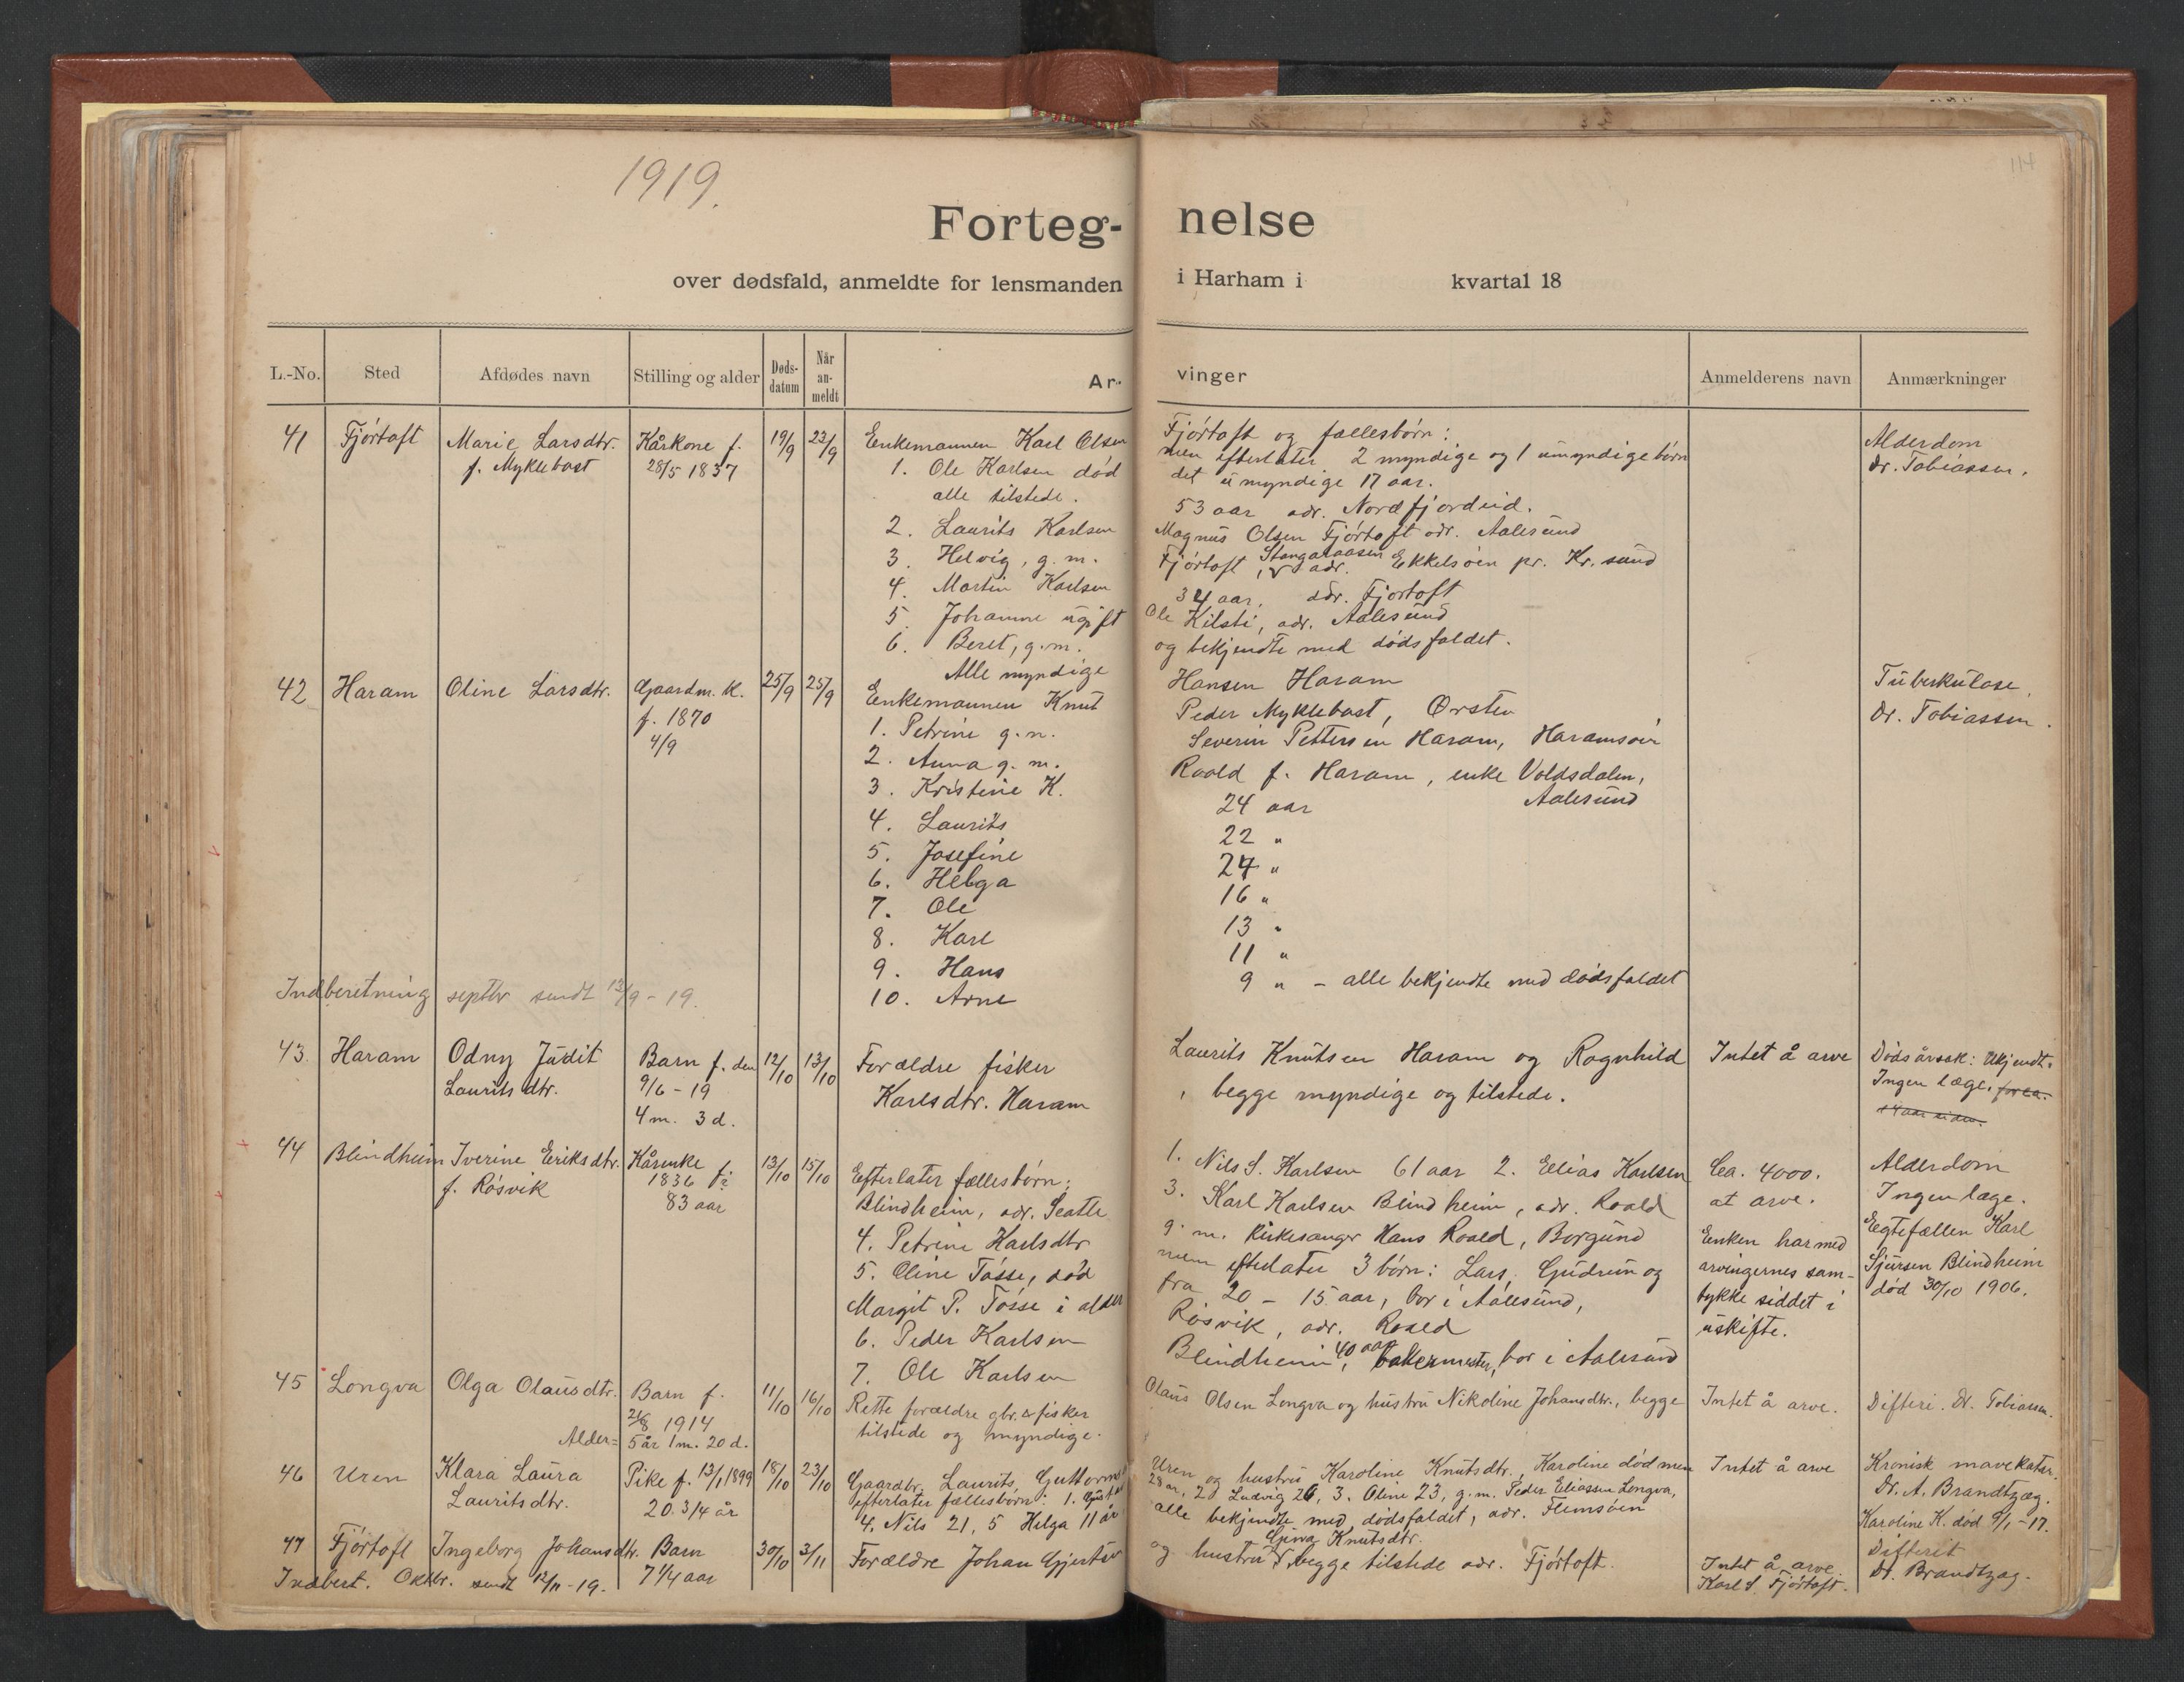 1919.
114
Forteg- nelse
over dødsfald, anmeldte for lensmanden i Harham i kvartal 18
L.-No. Sted Afdødes navn Stilling og alder Døds-datum Når an-meldt Ar- vinger Anmelderens navn Anmærkninger
41 Fjórtoft Marie Larsdtr. Kårkone f. 19/9 22/9 Enkemannen Karl Olsen Fjórtoft og fællesbórn: Alderdom
f. Myklebost 28/5 1837 1. Ole Karlsen død men efterlater 2 myndige og 1 umyndige bórn Dr. Tobiassen.
alle tilstede. det umyndige 17 aar.
2. Laurits Karlsen 53 aar adr. Nordfjordeid.
3. Helvig, g. m. Magnus Olsen Fjórtoft adr. Aalesund
4. Martin Karlsen Fjórtoft, adr. Ekkelsóen pr. Kr. sund
5. Johanne ugift 34 aar. adr. Fjortoft
6. Beret, g. m. Ole Kilsti, adr. Aalesund
Alle myndige og bekjendte med dódsfaldet.
42 Haram Oline Larsdtr. Gaardm. K. 25/9 25/9 Enkemannen Knut Hansen Haram Tuberkulose.
f. 1870 1. Petrine g. m. Peder Myklebost, Ørsten Dr. Tobiassen.
4/9 2. Anna g. m. Severin Pettersen Haram, Haramsóen
3. Kristine K. Roald f. Haram, enke Voldsdalen,
4. Laurits 24 aar Aalesund
5. Josefine 22 "
6. Helga 24 "
7. Ole 16 "
8. Karl 13 "
9. Hans 11 "
10. Arne 9 " - alle bekjendte med dódsfaldet
Indberetning septbr sendt 12/9 - 19.
43. Haram Odny Judit Barn f. den 12/10 13/10 Forældre fisker Laurits Knutsen Haram og Ragnhild Intet å arve Dódsårsak: Ukjendt.
Laurits dtr. 9/6 - 19 Karlsdtr. Haram, begge myndige og tilstede. Ingen læge.
4 m. 3 d.
44 Blindheim Iverine Eriksdtr. Kårenke f. 13/10 15/10 Efterlater fællesbórn: 1. Nils S. Karlsen 61 aar 2. Elias Karlsen Ca. 4000. Alderdom
f. Rósvik 1836 Blindheim, adr. Seatle 3. Karl Karlsen Blindheim, adr. Roald at arve. Ingen læge.
83 aar 4. Petrine Karlsdtr g. m. Kirkesanger Hans Roald, Borgund Enken har med Egtefællen Karl
5. Oline Tósse, død men efterlater 3 bórn: Lars, Gudrun og arvingernes sam- Sjursen Blindheim
Margit P. Tósse i alder fra 20 - 15 aar, bor i Aalesund, tykke siddet i død 30/10 1906.
6. Peder Karlsen Rósvik, adr. Roald uskifte.
7. Ole Karlsen Blindheim, 40 aar bakermester, bor i Aalesund
45 Longva Olga Olausdtr. Barn f. 11/10 16/10 Rette forældre gbr. & fisker Olaus Olsen Longva og hustru Nikoline Johansdtr., begge Intet å arve. Difteri. Dr. Tobiassen.
21/8 1914 tilstede og myndige.
Alder = 5 år 1 m. 20 d.
46 Uren Klara Laura Pike f. 13/1 1899 18/10 23/10 Gaardbr. Laurits Guttorms Uren og hustru Karoline Knutsdtr., Karoline død men Intet å arve Kronisk mavekatar.
Lauritsdtr. 20 3/4 år efterlater fællesbórn: 1. 28 aar, 2. Ludvig 26, 3. Oline 23, g. m. Peder Eliassen Longva, Dr. A. Brandtzæg.
4. Nils 21, 5 Helga 11 år alle bekjendte med dódsfaldet, adr. Flemsóen Karoline K. død 9/1 - 17.
47 Fjórtoft Ingeborg Johansdtr. Barn 30/10 3/11 Forældre Johan Gjertsen og hustru Gjina Knutsdtr. begge tilstede adr. Fjórtoft. Intet å arve. Difterit
7 1/4 aar Karl S. Fjórtoft. Dr. Brandtzæg.
Indbert. Oktbr. sendt 12/11 - 19.